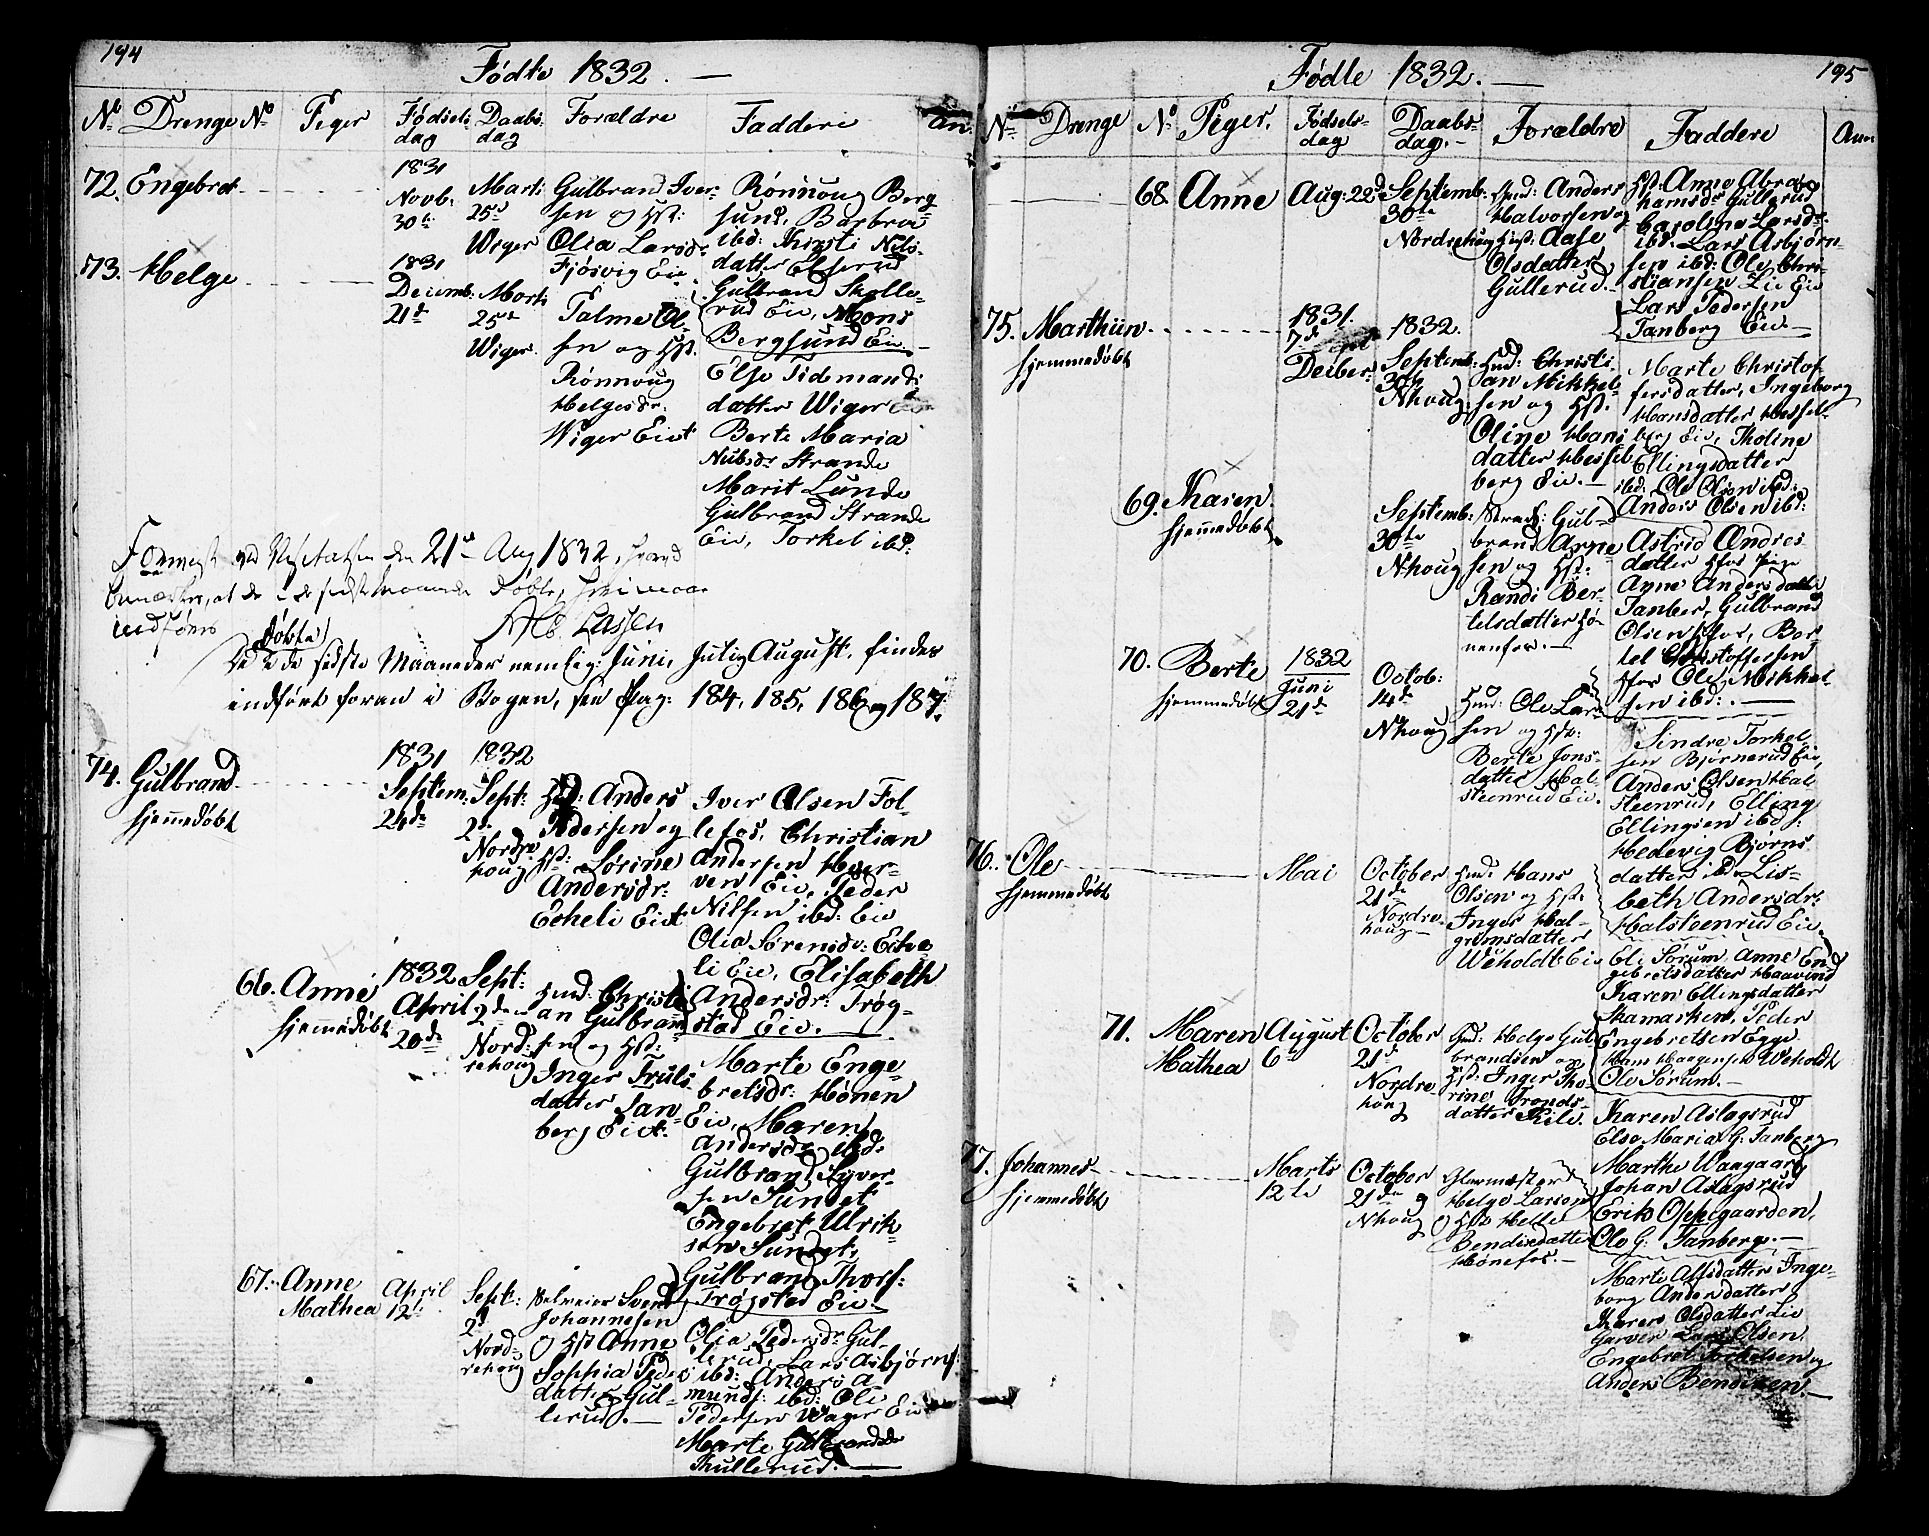 194
Födte 1832. —
No Drenge No Piger Fødselsdag Daabsdag Forældre Faddere An.
72. Engebret
1831
Novb:
30te
Marts
25de
Wiger
Gulbrand Iver-
sen og Hst:
Olia Larsdr
Fjösvig Eie
Rönnoug Berg
sund, Barbra
ibd: Kirsti Nils
datter Elserud
Gulbrand Skolle-
rud Eie, Mons
Bergsund Eie. —
73. Helge
1831
Decemb:
21de
Marts
25de
Wiger.
Palme Ol
sen og Hst.
Rönnoug
Helgesdr:
Wiger Eiet
Else Tidemands
datter Wiger
Berte Maria
Nubsdr Strande
Marit Lunde
Gulbrand Strande
Eie, Torkel ibd:
den 21de Aug 1832,
indføres
Lassen
Döbte
de sidste Maaneder nemlig: Juni, Julig August, findes
indført foran i Bogen, See Pag: 184, 185, 186 og 187.
74. Gulbrand
hjemmedöbt
1831
Septem:
24de
1832
Sept:
2de
Nordre
houg
Hd: Anders
Pedersen og
Hst: Lörine
Andersdr:
Eckeli Eiet
Iver Olsen Fol-
lefos, Christian
Andersen Hver-
ven Eie, Peder
Nilsen ibd: Eie
Olia Sörensdr: Eche
li Eie, Elisabeth
Andersdr: Trög-
stad Eie.
66. Anne
hjemmedöbt
1832
April
20de
Sept:
2den
Nord:
rehoug
Hmd: Christi
an Gulbrand
sen og Hst:
Inger Truls
datter Tan-
berg Eiet.
Marte Enge-
bretsdr: Hönen
Eie, Maren
Andersdr ibd:
Gulbrand Syver-
sen Sundet
Engebret Ulrik-
sen Sundet,
Gulbrand Thors:
Trögstad Eie.
67. Anne
Mathea
April
12te
Sept:
2de
Nord-
rehoug
Selveier Svend
Johannesen
og Hst Anne
Sophia Peders
datter Gul-
lerud. —
Olia Pedersdr Gul-
lerud, Lars Asbjörns
ibd: Anders A
munds: ibd: Ole
Pedersen Wager Eie
Marte Gulbrandsdr
Kullerud. —
195
Födte 1832. —
No Drenge No Piger. Fødselsdag Daabsdag. — Forældre Faddere Anm
68 Anne
Aug: 22de
Septemb:
30te
Nordrehoug
Hmd: Anders
Halvorsen og
Hst: Aase
Olsdatter
Gullerud. —
Hst: Anne Abra-
hamsdr Gullerud
Caroline Larsdr:
ibd. Lars Asbjørn-
sen ibd: Ole Chri-
stiansen Lie Eie
Lars Pedersen
Tanberg Eie. —
75. Marthin
hjemmedöbt
1831.
7de
Decber:
1832.
Septemb:
30te
Nhoug
Hmd: Christi
an Mikkel-
sen og Hst.
Oline Hans
datter Hessel
berg Eie. —
Marte Christof-
fersdatter, Ingeborg
Hansdatter Hessel-
berg Eie, Tholine
Ellingsdatter
ibd: Ole Olsen ibd:
Anders Olsen ibd:
69. Karen
hjemmedöbt
Septemb:
30te
Nhoug
Gul-
brand Arne
sen og Hst:
Randi Ber-
telsdatter Hö-
nenfos. —
Astrid Andrea
datter Hfos Pige
Anne Andersdatter
Tanber, Gulbrand
Olsen Hfos, Ber-
tel Christoffersen
Hfos Ole Mikkel-
sen ibd: —
70. Berte
hjemmedöbt
1832
Juni
21de
Octob:
14de
Nhoug
Hmd: Ole Lar-
sen og Hst:
Berte Jons-
datter Hal-
steenrud Eie.
Sindre Torkel
sen Bjørnerud Eie,
Anders Olsen Hal-
steenrud, Elling
Ellingsen ibd:
Hedevig Bjørns
datter ibd Lis-
beth Andersdr:
Halsteenrud Eie.
76. Ole
hjemmedöbt
Mai
October
21de
Nordre-
houg
Hmd: Hans
Olsen og Hst:
Inger Hal-
grimsdatter
Weholdt Eie
El: Sörum Anne En
gebretsdatter Haavind
Karen Ellingsdatter
Skamarken, Peder
Engebretsen Egge
Hans Haagensen Weholdt
Ole Sörum. —
71. Maren
Mathea
August
6te
October
21de
Nordre
houg
Hmd: Helge Gul
brandsen og
Hst: Inger Tho-
rine Tronds-
datter Kile.
Karen Aslagsrud
Else Maria G. Tanberg
Marthe Waagaard
Johan Aslagsrud
Erik Oppegaarden,
Ole G: Tanberg. —
77. Johannes
hjemmedöbt
Marts
12te
October
21de
Nhoug
Glarmester
Helge Larsen
og Hst Helle
Bendixdatter
Hönefos. —
Marte Alfsdatter Inge-
borg Andersdatter
Karen Olsdatter Lie
Garver Lars Olsen,
Engebret Torkelsen og
Anders Bendixen. —